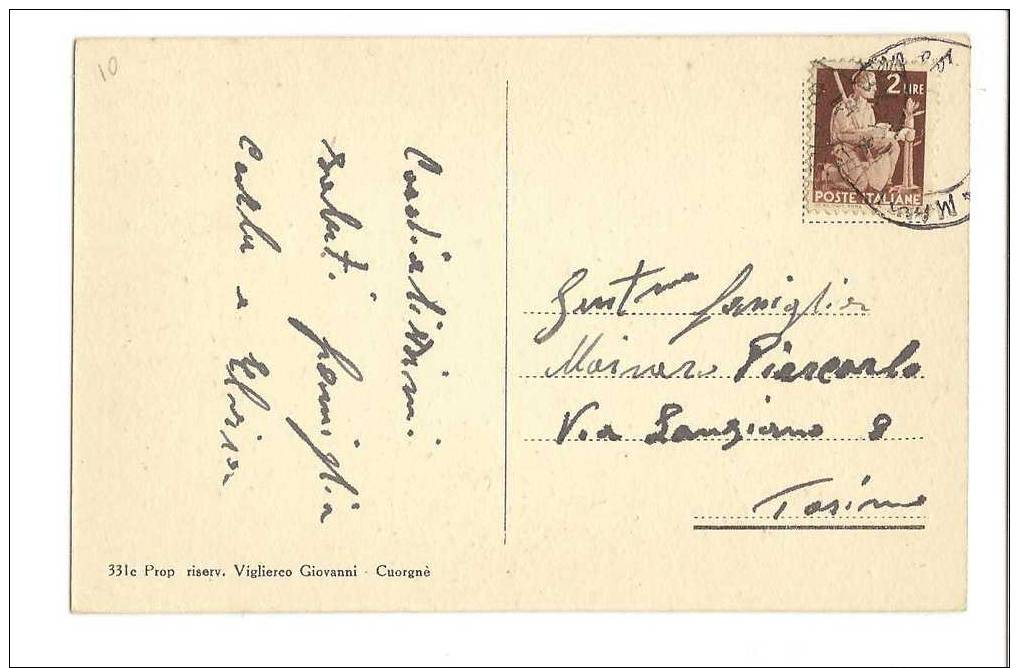 10
Cordialissimi
saluti famiglia
Carlo e
2 LIRE
POSTE ITALIANE
Gent.me famiglia
Piercarlo
Via 8
Torino
331c Prop riserv. Viglierco Giovanni - Cuorgnè